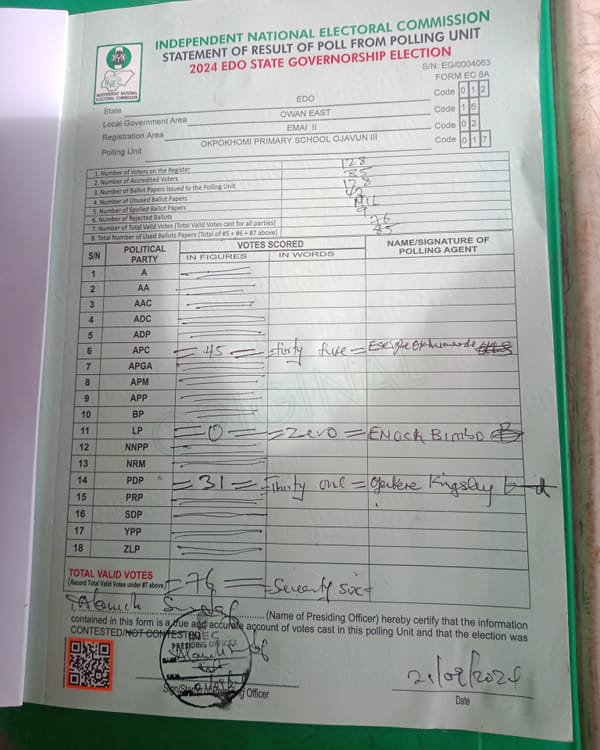 INDEPENDENT NATIONAL ELECTORAL COMMISSION
STATEMENT OF RESULT OF POLL FROM POLLING UNIT
2024 EDO STATE GOVERNORSHIP ELECTION
INEC
INDEPENDENT NATIONAL ELECTORAL COMMISSION
S/N: EG/0004063
FORM EC 8A
State EDO Code 0 1 2
Local Government Area OWAN EAST Code 1 6
Registration Area EMAI II Code 0 2
Polling Unit OKPOKHOMI PRIMARY SCHOOL OJAVUN III Code 0 1 7
1. Number of Voters on the Register 128
2. Number of Accredited Voters 85
3. Number of Ballot Papers Issued to the Polling Unit 128
4. Number of Unused Ballot Papers 42
5. Number of Spoiled Ballot Papers NIL
6. Number of Rejected Ballots 9
7. Number of Total Valid Votes (Total Valid Votes cast for all parties) 76
8. Total Number of Used Ballots Papers (Total of #5 + #6 + #7 above) 85
S/N POLITICAL PARTY VOTES SCORED NAME/SIGNATURE OF POLLING AGENT
IN FIGURES IN WORDS
1 A
2 AA
3 AAC
4 ADC
5 ADP
6 APC =45= forty five=
7 APGA
8 APM
9 APP
10 BP
11 LP =0= =Zero= ENOCH BIMBO
12 NNPP
13 NRM
14 PDP =31= Thirty one= Kingsley
15 PRP
16 SDP
17 YPP
18 ZLP
TOTAL VALID VOTES =76= =Seventy six=
(Record Total Valid Votes under #7 above)
(Name of Presiding Officer) hereby certify that the information
contained in this form is a true and accurate account of votes cast in this polling Unit and that the election was
CONTESTED/NOT CONTESTED
INEC
PRESIDING OFFICER
Sign/Stamp of Presiding Officer
21/09/2024
Date